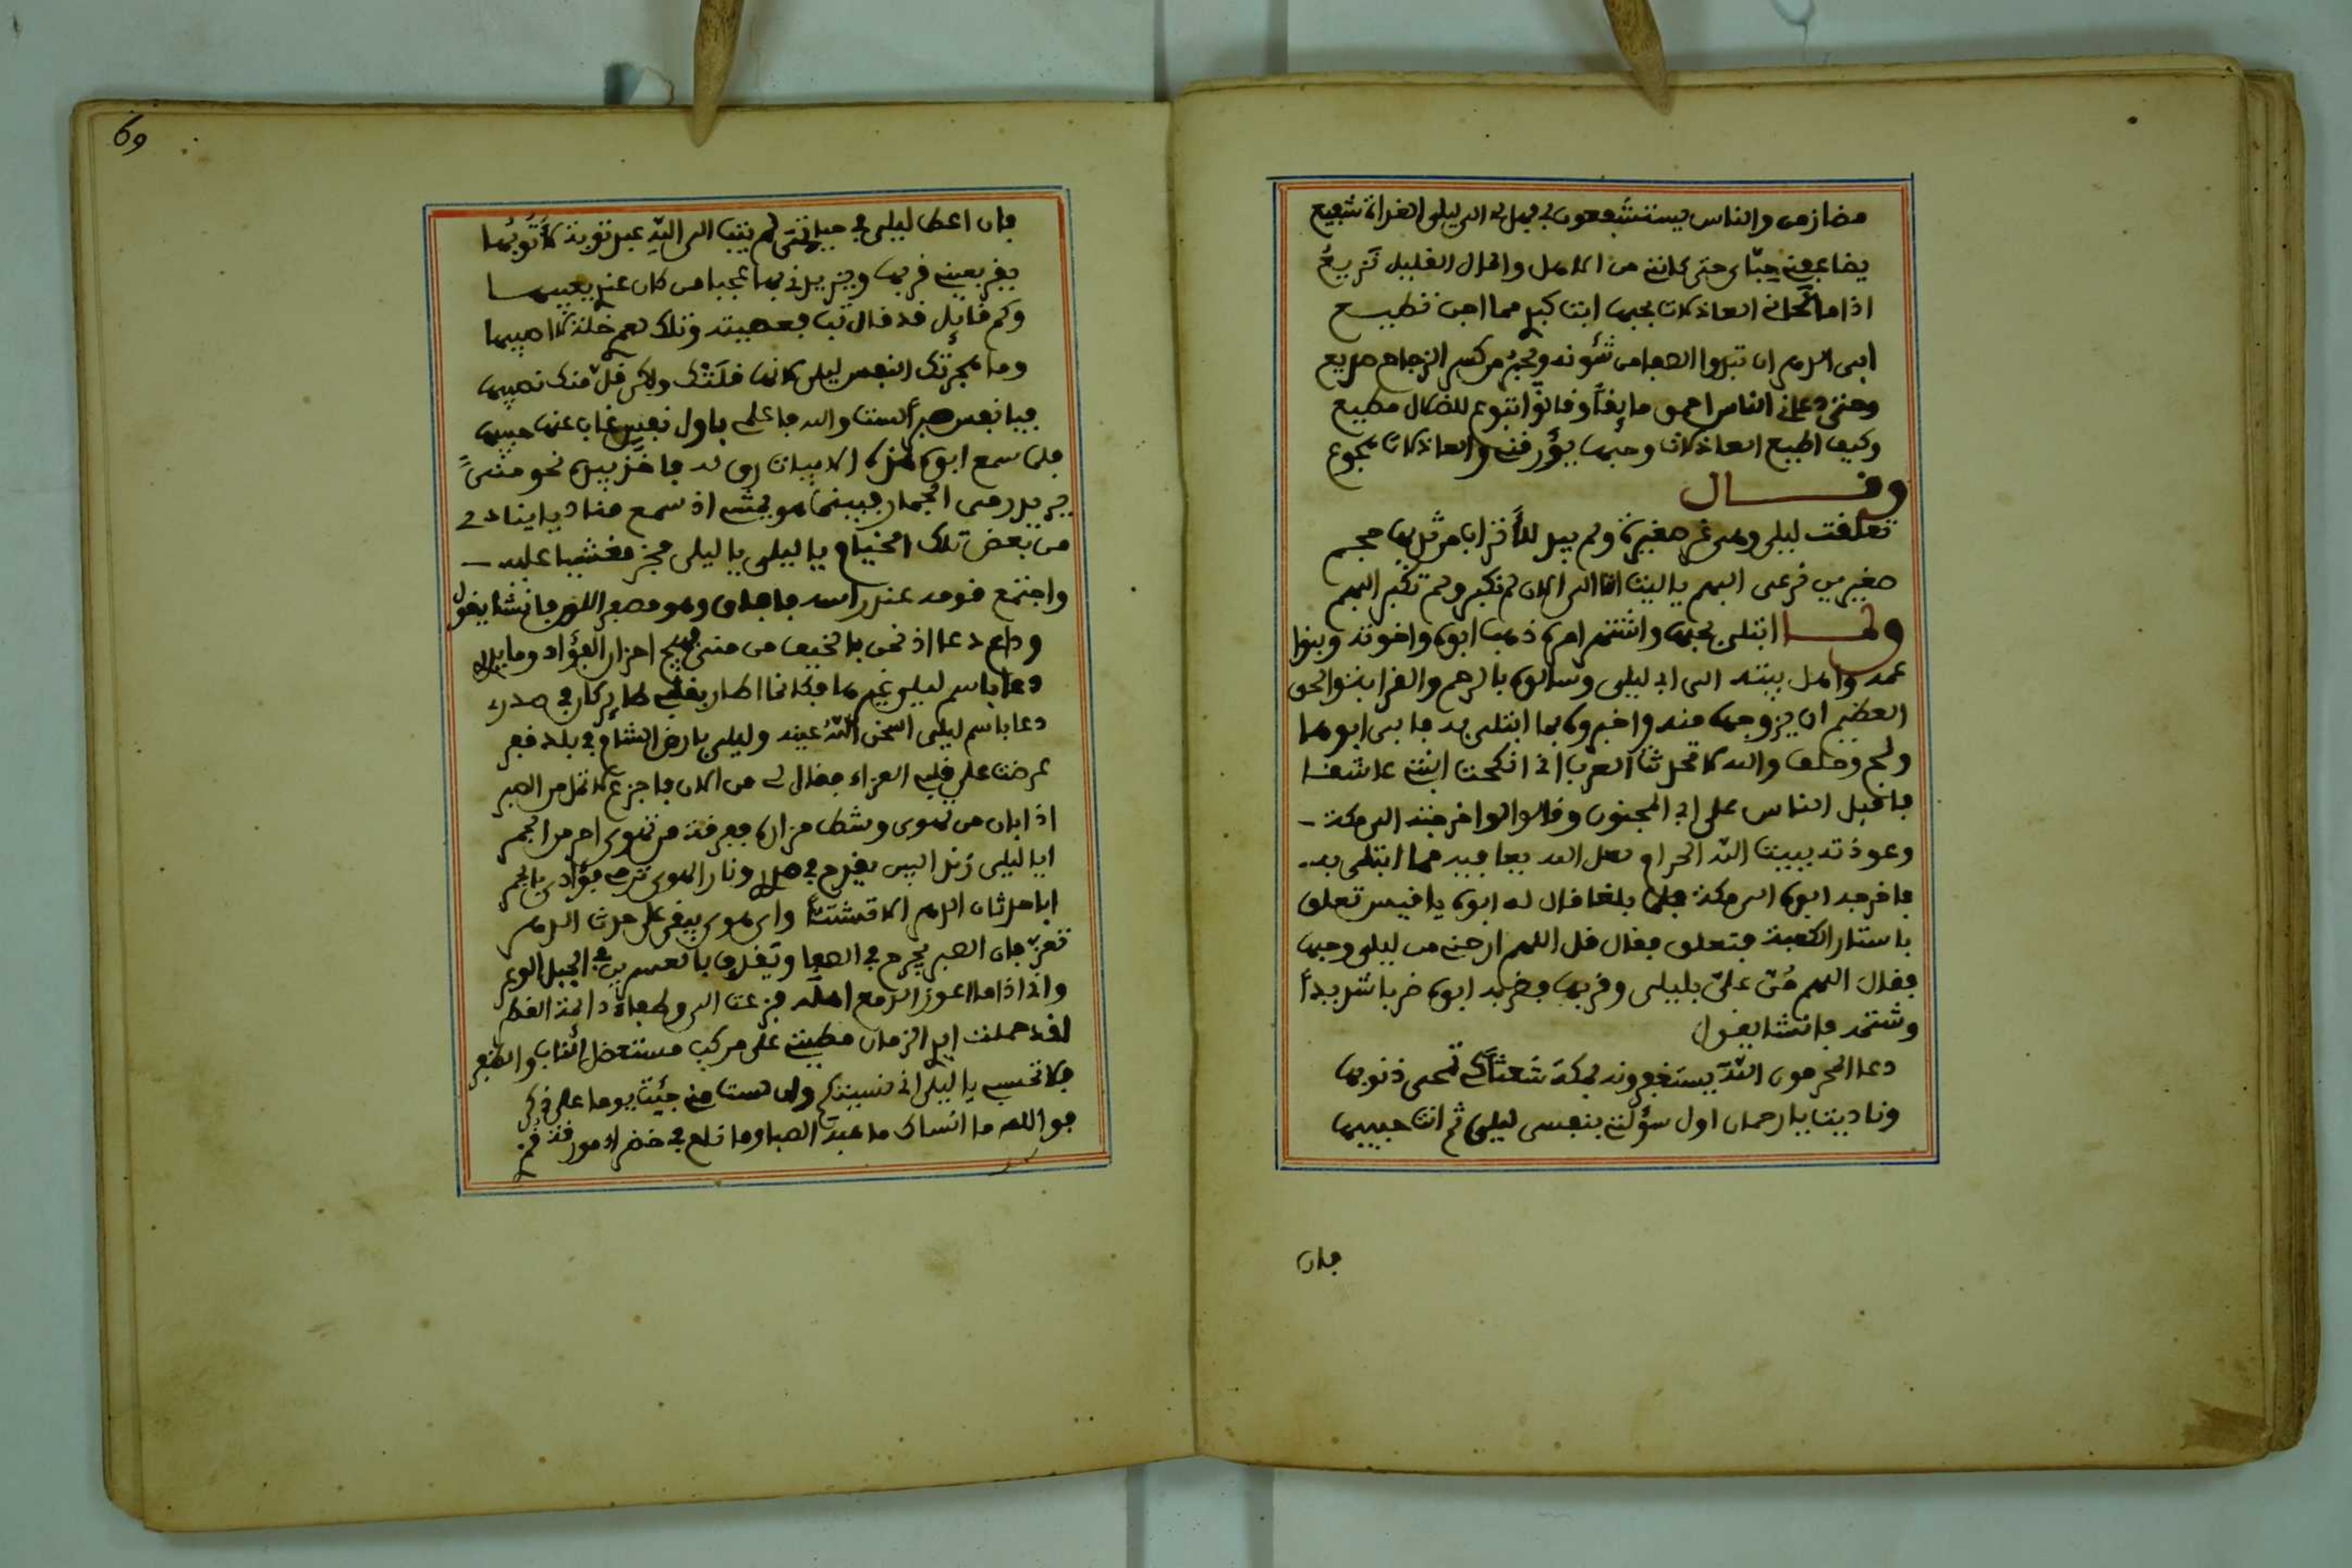 مضا زمن والناس يستشفعون بي فهل لي الى ليلى الغداة شفيع
يضاعفني حبّك حتى كانني من الاهل والمال القليل نزيعُ
اذا ما لحاني العاذلات بحبها ابت كبد مما اجن قطيع
ابى الدهر ان تبدوا الصفا من شئونه ويجبر من كسر الزجاج صريع
وحتى دعاني الناس احمق مايقاً وقالوا تبوع للضلال مطيع
وكيف اطيع العاذلات وحبها يؤرقني والعاذلات هجوع
وقال
تعلقت ليلى وهي غر صغيرة ولم يبد للأتراب من ثديها حجم
صغيرين نرعى البهم يا ليت اننا الى الان لم نكبر ولم تكبر البهم
ولما ابتلى بحبها واشتهر امره ذهب ابوه واخوته وبنوا
عمه واهل بيته الى ابي ليلى وسالوه بالرحم والقرابة والحق
العظيم ان يزوجها منه واخبروه بما ابتلى به فابى ابوها
ولج وحلف والله لا تحدثت العرب اني انكحت ابنتي عاشقا
فاقبل الناس على ابي المجنون وقالوا لو اخرجته الى مكة
وعوذته ببيت الله الحرام لعل الله يعافيه مما ابتلى به
فاخرجه ابوه الى مكة فلما بلغا قال له ابوه يا قيس تعلق
باستار الكعبة فتعلق فقال قل اللهم ارحني من ليلى وحبها
فقال اللهم مُنّ عليّ بليلى وقربها فضربه ابوه ضربا شديداً
وشتمه فانشا يقول
دعا المحرمون اللّه يستغفرونه بمكة شعثاً كي تمحى ذنوبها
وناديت يا رحمان اول سؤلتي بنفسي ليلى ثم انت حبيبها
فان
69
فان اعط ليلى في حياتي لم يتب الى اللّه عبد توبة لا أتُوبُها
يقر بعيني قربها ويزيدني بها عجبا من كان عندي يعيبها
وكم قايل قد قال تب فعصيته وتلك لعمري خلة لا اصيبها
وما هجرتك النفس ليلى لانها قلَتْك ولكن قلّ منك نصيبها
فيا نفس صبراً لست والله فاعلمي باول نفس غاب عنها حبيبها
فلما سمع ابوه هذه الابيات رق له فاخذ بيده نحو منىً
يريد رمى الجمار فبينما هو يمشي اذ سمع مناديا ينادي
من بعض تلك الخيام يا ليلى يا ليلى فخر مغشيا عليه
واجتمع قومه عند راسه فافاق وهو مصفر اللون فانشا يقول
وداع دعا اذ نحن بالخيف من منى فهيج احزان الفؤاد وما يدري
دعا باسم ليلى غيرها فكانما اطار بقلبي طايرا كان في صدري
دعا باسم ليلى اسخن اللّهُ عينه وليلى بارض الشام في بلد قفر
عرضت على قلبي العزاء فقال لي من الان فاجزع لا تمل من الصبر
اذا بان من تهوى وشط مزاره ففرقة من تهوى احر من الجمر
ايا ليلى زند البين يقدح في صدري ونار الهوى ترمي فؤادي بالجمر
ابا حدثان الدهر الا تشتتاً واي هوى يبقى على حدث الدهر
تعزّ فان الصبر يجرح في الصفا ويقدح بالعسرين في الجبل الوعر
واني اذا ما اعوز الدمع اهله فزعت الى وطفاء دائمة القطر
لقد حملت ايدي الزمان مطيتي على مركب مستعضل الناب والظفر
فلا تحسبي يا ليلى اني نسيتكم ولا لست مني جيت يوما على ذكر
فوالله ما انساك ما هبت الصبا وما ناح في خضراء مورقة قمري